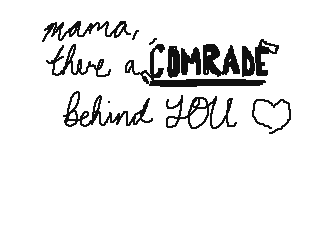 mama,
there a COMRADE
behind YOU ♡